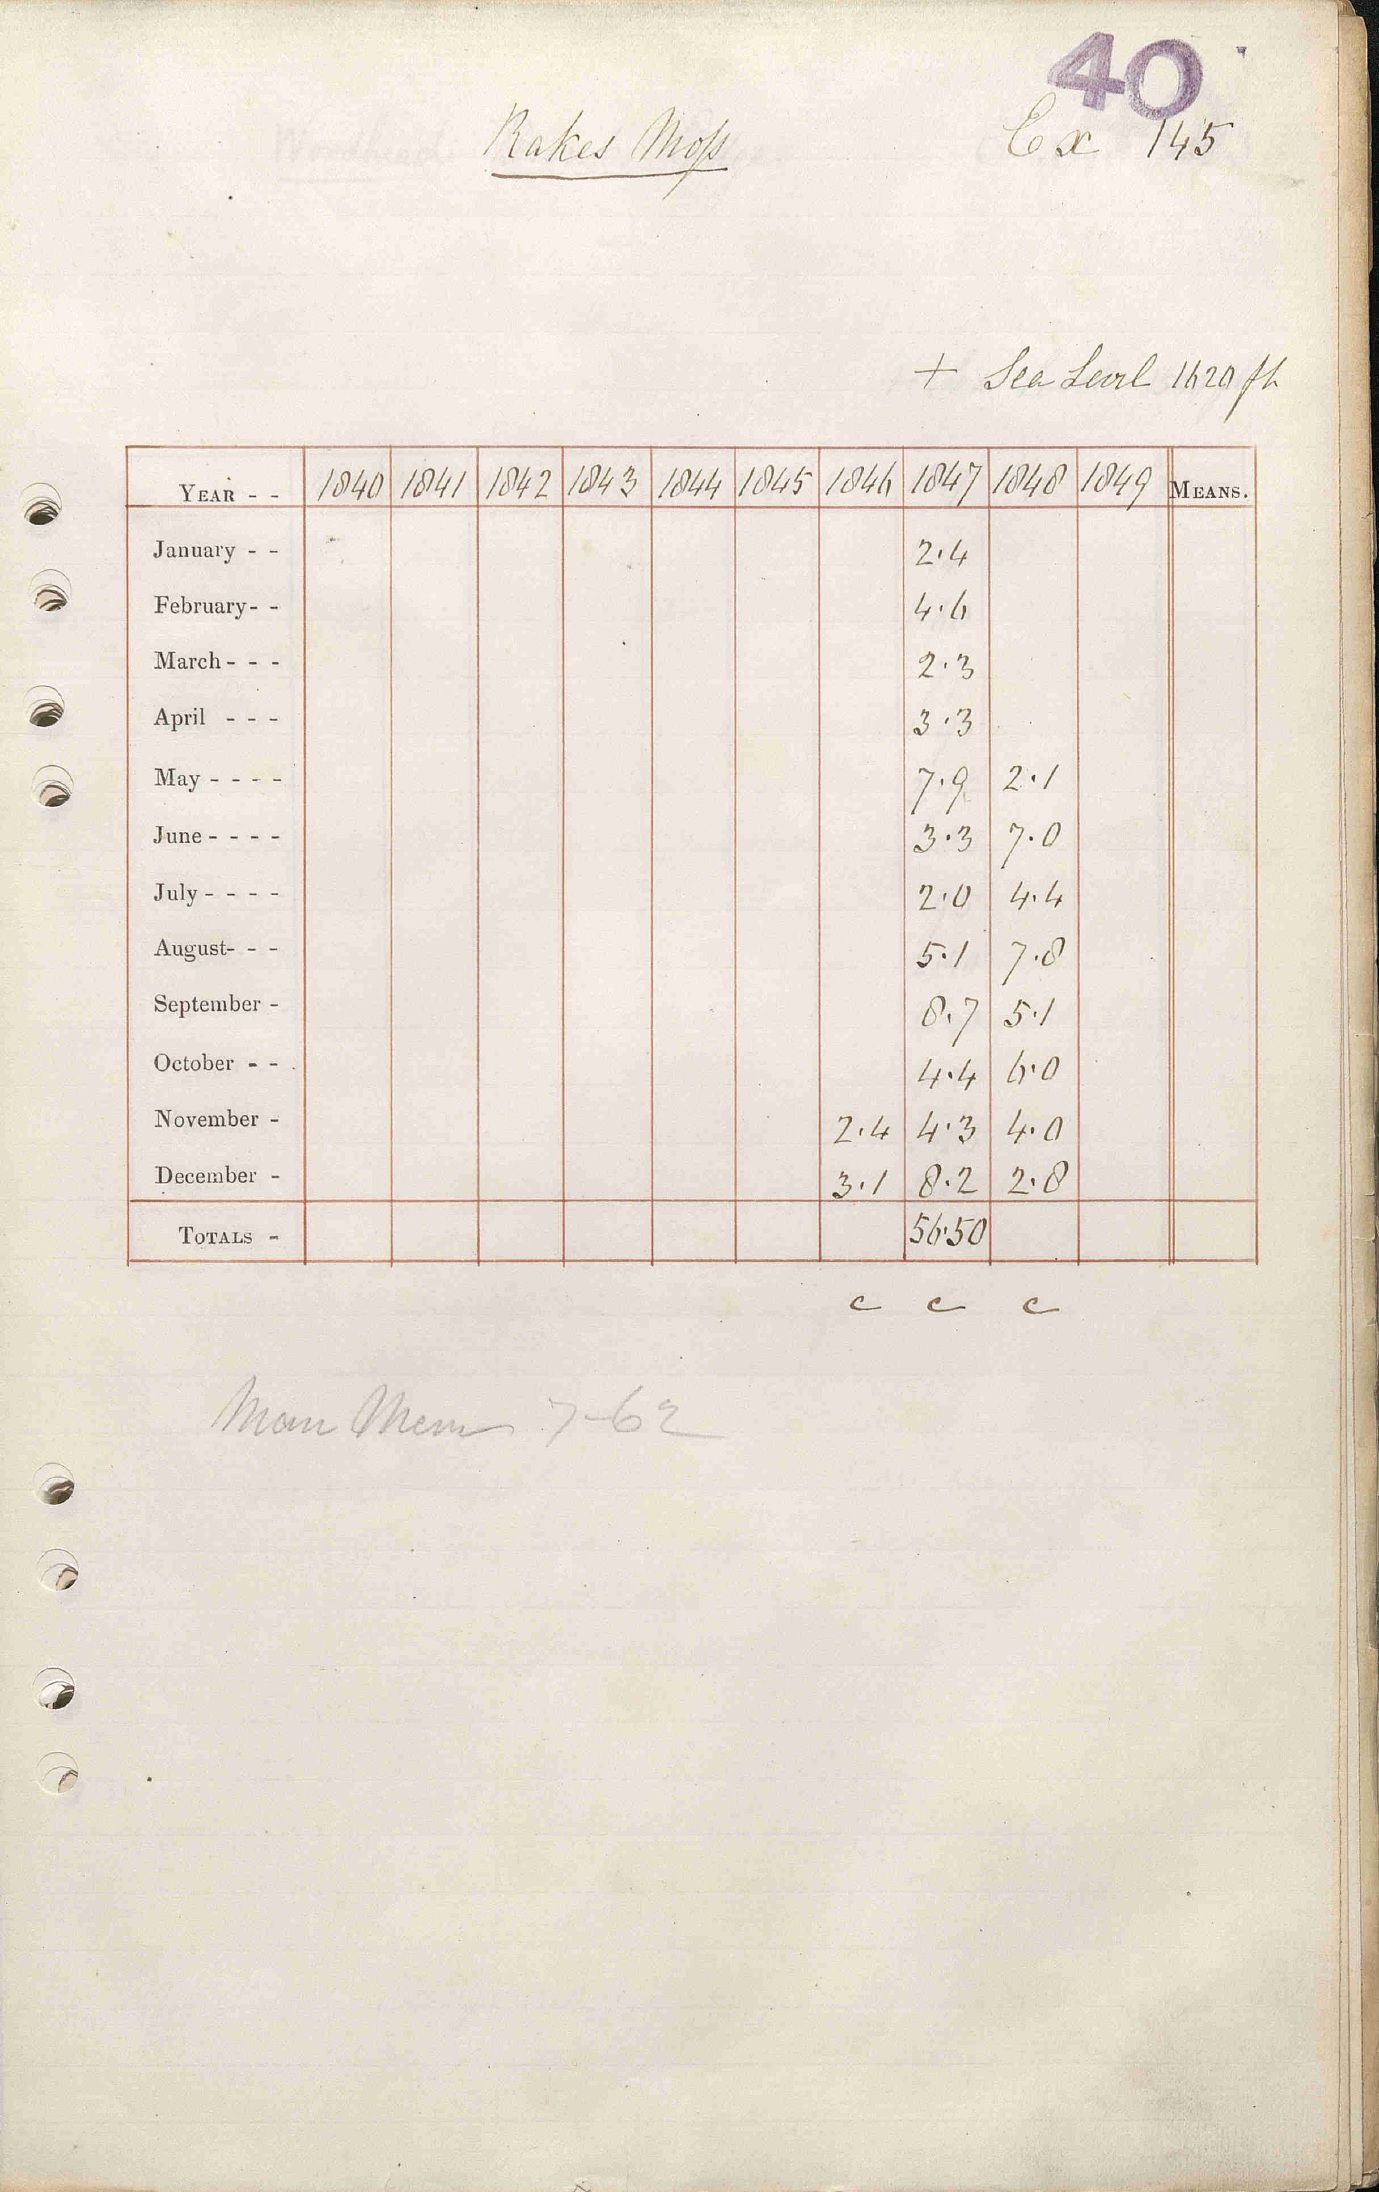 40
Rakes Moss
Ex 145
+ Sea Level 1620 ft
YEAR - - 1840 1841 1842 1843 1844 1845 1846 1847 1848 1849 MEANS.
January - - 2.4
February - - 4.6
March - - - 2.3
April - - - 3.3
May - - - - 7.9 2.1
June - - - - 3.3 7.0
July - - - - 2.0 4.4
August - - - 5.1 7.8
September - 8.7 5.1
October - - 4.4 6.0
November - 2.4 4.3 4.0
December - 3.1 8.2 2.8
TOTALS - 56.50
c c c
7-62